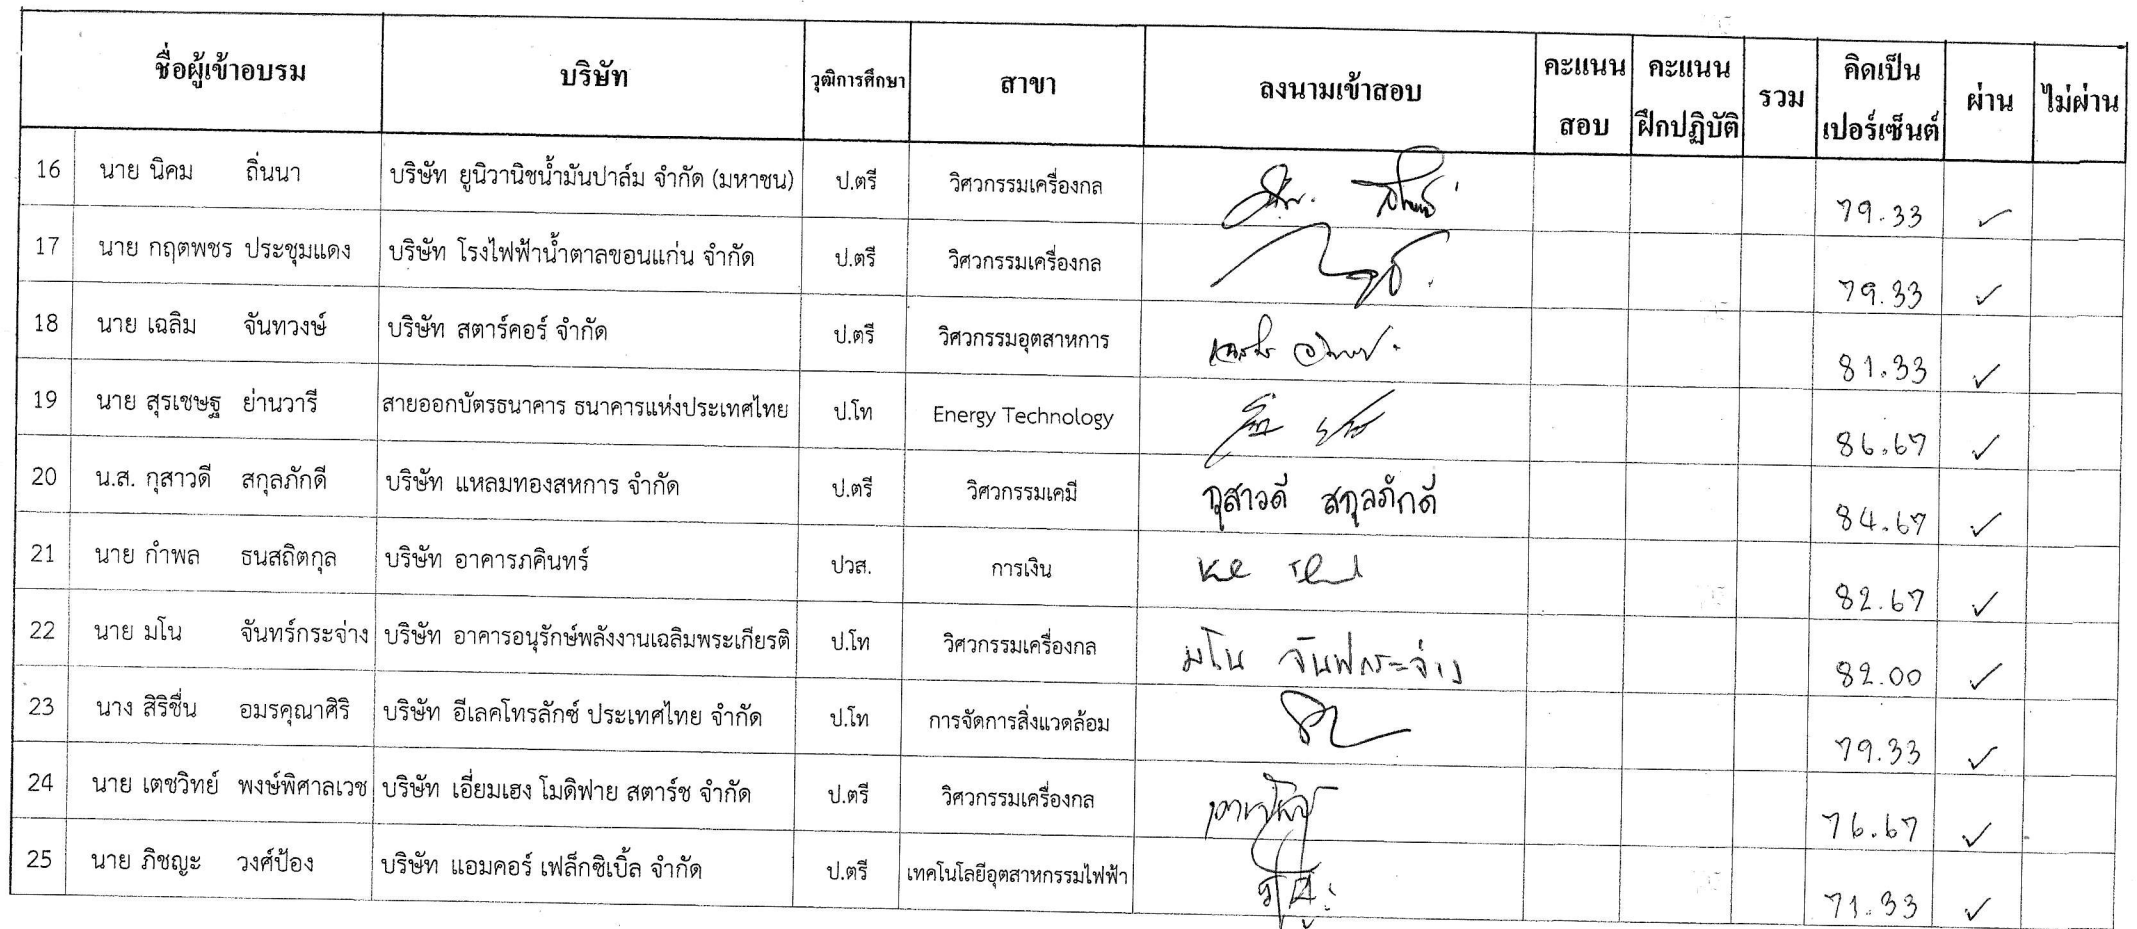 ชื่อผู้เข้าอบรม บริษัท วุฒิการศึกษา สาขา ลงนามเข้าสอบ คะแนนสอบ คะแนนฝึกปฏิบัติ รวม คิดเป็นเปอร์เซ็นต์ ผ่าน ไม่ผ่าน
16 นาย นิคม ถิ่นนา บริษัท ยูนิวานิชน้ำมันปาล์ม จำกัด (มหาชน) ป.ตรี วิศวกรรมเครื่องกล 79.33 ✓
17 นาย กฤตพชร ประชุมแดง บริษัท โรงไฟฟ้าน้ำตาลขอนแก่น จำกัด ป.ตรี วิศวกรรมเครื่องกล 79.33 ✓
18 นาย เฉลิม จันทวงษ์ บริษัท สตาร์คอร์ จำกัด ป.ตรี วิศวกรรมอุตสาหการ 81.33 ✓
19 นาย สุรเชษฐ ย่านวารี สายออกบัตรธนาคาร ธนาคารแห่งประเทศไทย ป.โท Energy Technology 86.67 ✓
20 น.ส. กุสาวดี สกุลภักดี บริษัท แหลมทองสหการ จำกัด ป.ตรี วิศวกรรมเคมี กุสาวดี สกุลภักดี 84.67 ✓
21 นาย กำพล ธนสถิตกุล บริษัท อาคารภคินทร์ ปวส. การเงิน 82.67 ✓
22 นาย มโน จันทร์กระจ่าง บริษัท อาคารอนุรักษ์พลังงานเฉลิมพระเกียรติ ป.โท วิศวกรรมเครื่องกล มโน จันทร์กระจ่าง 82.00 ✓
23 นาง สิริชื่น อมรคุณาศิริ บริษัท อีเลคโทรลักซ์ ประเทศไทย จำกัด ป.โท การจัดการสิ่งแวดล้อม 79.33 ✓
24 นาย เตชวิทย์ พงษ์พิศาลเวช บริษัท เอี่ยมเฮง โมดิฟาย สตาร์ช จำกัด ป.ตรี วิศวกรรมเครื่องกล 76.67 ✓
25 นาย ภิชญะ วงศ์ป้อง บริษัท แอมคอร์ เฟล็กซิเบิ้ล จำกัด ป.ตรี เทคโนโลยีอุตสาหกรรมไฟฟ้า 71.33 ✓